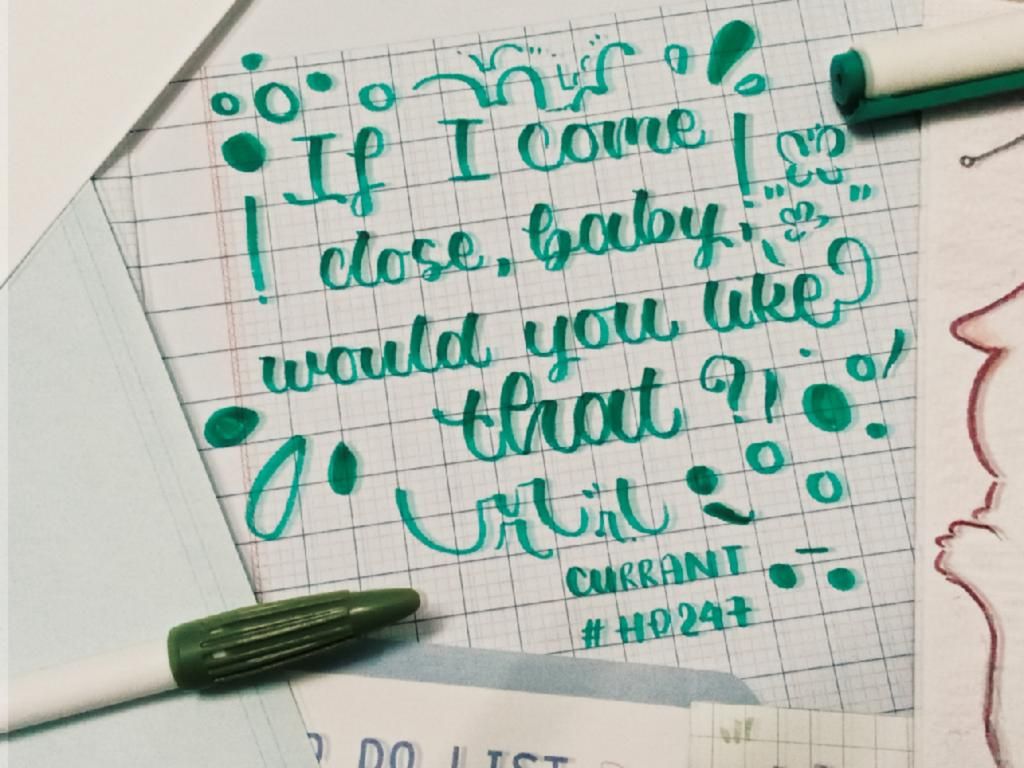 If I come
close, baby,
would you like
that?!
CURRANT
#HP247
DO LIST